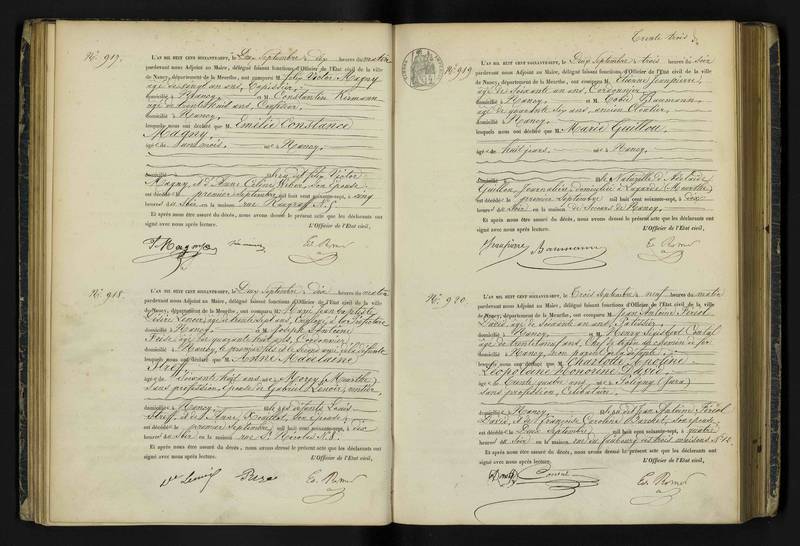 N.º 917.
L'AN MIL HUIT CENT SOIXANTE-SEPT, le Deux Septembre à dix heures du matin
pardevant nous Adjoint au Maire, délégué faisant fonctions d'Officier de l'État civil de la ville
de Nancy, département de la Meurthe, ont comparu M. Felix Victor Magny
âgé de vingt un ans, Tapissier,
domicilié à Nancy. et M. Constantin Kirmann
domicilié à Nancy.
lesquels nous ont déclaré que M. Emilie Constance
Magny,
âgé de née à Nancy,
fille dudit Felix Victor
Magny, et d'Anne Céline Weber, son épouse,
est décédée le premier septembre mil huit cent soixante-sept, à cinq
heures du Soir en la maison rue N.º 5.
Et après nous être assuré du décès, nous avons dressé le présent acte que les déclarants ont
signé avec nous après lecture. L'Officier de l'État civil,
F. Magny
N.º 918.
L'AN MIL HUIT CENT SOIXANTE-SEPT, le Deux Septembre à dix heures du matin
pardevant nous Adjoint au Maire, délégué faisant fonctions d'Officier de l'État civil de la ville
de Nancy, département de la Meurthe, ont comparu M. Marie Jean Baptiste
Désiré Lenoir, âgé de trente sept ans, Employé à la Préfecture
domicilié à Nancy. et M. Joseph Antoine
âgé de quarante huit ans, Cordonnier,
domicilié à Nancy, le premier fils et le second ami de la défunte
lesquels nous ont déclaré que M. Anne Madelaine
Streff
âgée de Soixante huit ans née à (Meurthe)
sans profession, Epouse de Gabriel Lenoir, rentier,
domiciliée à Nancy fille des défunts Louis
Streff, et d'Anne son épouse,
est décédée le premier Septembre mil huit cent soixante-sept, à dix
heures du Soir en la maison rue St. Nicolas N.º 8.
Et après nous être assuré du décès, nous avons dressé le présent acte que les déclarants ont
signé avec nous après lecture. L'Officier de l'État civil,
Trente trois
N.º 919
L'AN MIL HUIT CENT SOIXANTE-SEPT, le Deux Septembre à trois heures du Soir
pardevant nous Adjoint au Maire, délégué faisant fonctions d'Officier de l'État civil de la ville
de Nancy, département de la Meurthe, ont comparu M. Etienne Jeanpierre,
âgé de Soixante un ans, Cordonnier,
domicilié à Nancy. et M. Baumann,
âgé de quarante six ans, ancien
domicilié à Nancy.
lesquels nous ont déclaré que M. Marie Guillon
âgée de huit jours, née à Nancy,
fille Naturelle d'Adelaïde
Guillon, Journalière, domiciliée à Lagarde (Meurthe)
est décédée le premier Septembre mil huit cent soixante-sept, à dix
heures du Soir en la maison de Secours de Nancy.
Et après nous être assuré du décès, nous avons dressé le présent acte que les déclarants ont
signé avec nous après lecture. L'Officier de l'État civil,
Jeanpierre Baumann
N.º 920.
L'AN MIL HUIT CENT SOIXANTE-SEPT, le Trois Septembre à neuf heures du matin
pardevant nous Adjoint au Maire, délégué faisant fonctions d'Officier de l'État civil de la ville
de Nancy, département de la Meurthe, ont comparu M. Jean Antoine Fériol
David, âgé de Soixante un ans, Pâtissier,
domicilié à Nancy. et M. Henry
âgé de ans, Chef de chemin de fer,
domicilié à Nancy,
lesquels nous ont déclaré que M. Charlotte Apoline
Léopoldine Honorine David
âgée de Trente quatre ans, née à Poligny (Jura)
sans profession, Célibataire,
domiciliée à Nancy fille de Jean Antoine Fériol
David, et de Françoise Caroline son épouse,
est décédée le Deux Septembre mil huit cent soixante-sept, à quatre
heures du Soir en la maison rue du faubourg des trois maisons N.º 12.
Et après nous être assuré du décès, nous avons dressé le présent acte que les déclarants ont
signé avec nous après lecture. L'Officier de l'État civil,